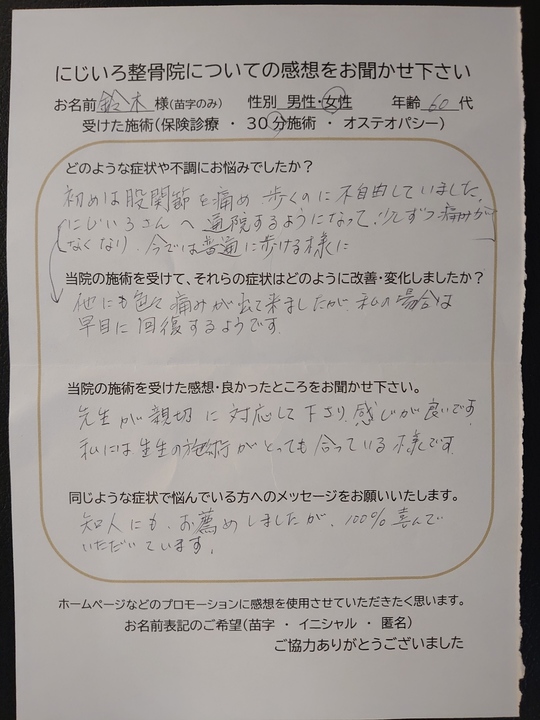 にじいろ整骨院についての感想をお聞かせ下さい
お名前 鈴木 様(苗字のみ) 性別 男性・女性 年齢 60 代
受けた施術(保険診療 ・ 30分施術 ・ オステオパシー)
どのような症状や不調にお悩みでしたか？
初めは股関節を痛め 歩くのに不自由していました。
にじいろさんへ通院するようになって、少しずつ痛みが
なくなり、今では普通に歩ける様に
当院の施術を受けて、それらの症状はどのように改善・変化しましたか？
他にも色々痛みが出て来ましたが、私の場合は
早目に回復するようです。
当院の施術を受けた感想・良かったところをお聞かせ下さい。
先生が親切に対応して下さり、感じが良いです。
私には先生の施術がとっても合っている様です。
同じような症状で悩んでいる方へのメッセージをお願いいたします。
知人にも、お薦めしましたが、100%喜んで
いただいています。
ホームページなどのプロモーションに感想を使用させていただきたく思います。
お名前表記のご希望(苗字 ・ イニシャル ・ 匿名)
ご協力ありがとうございました